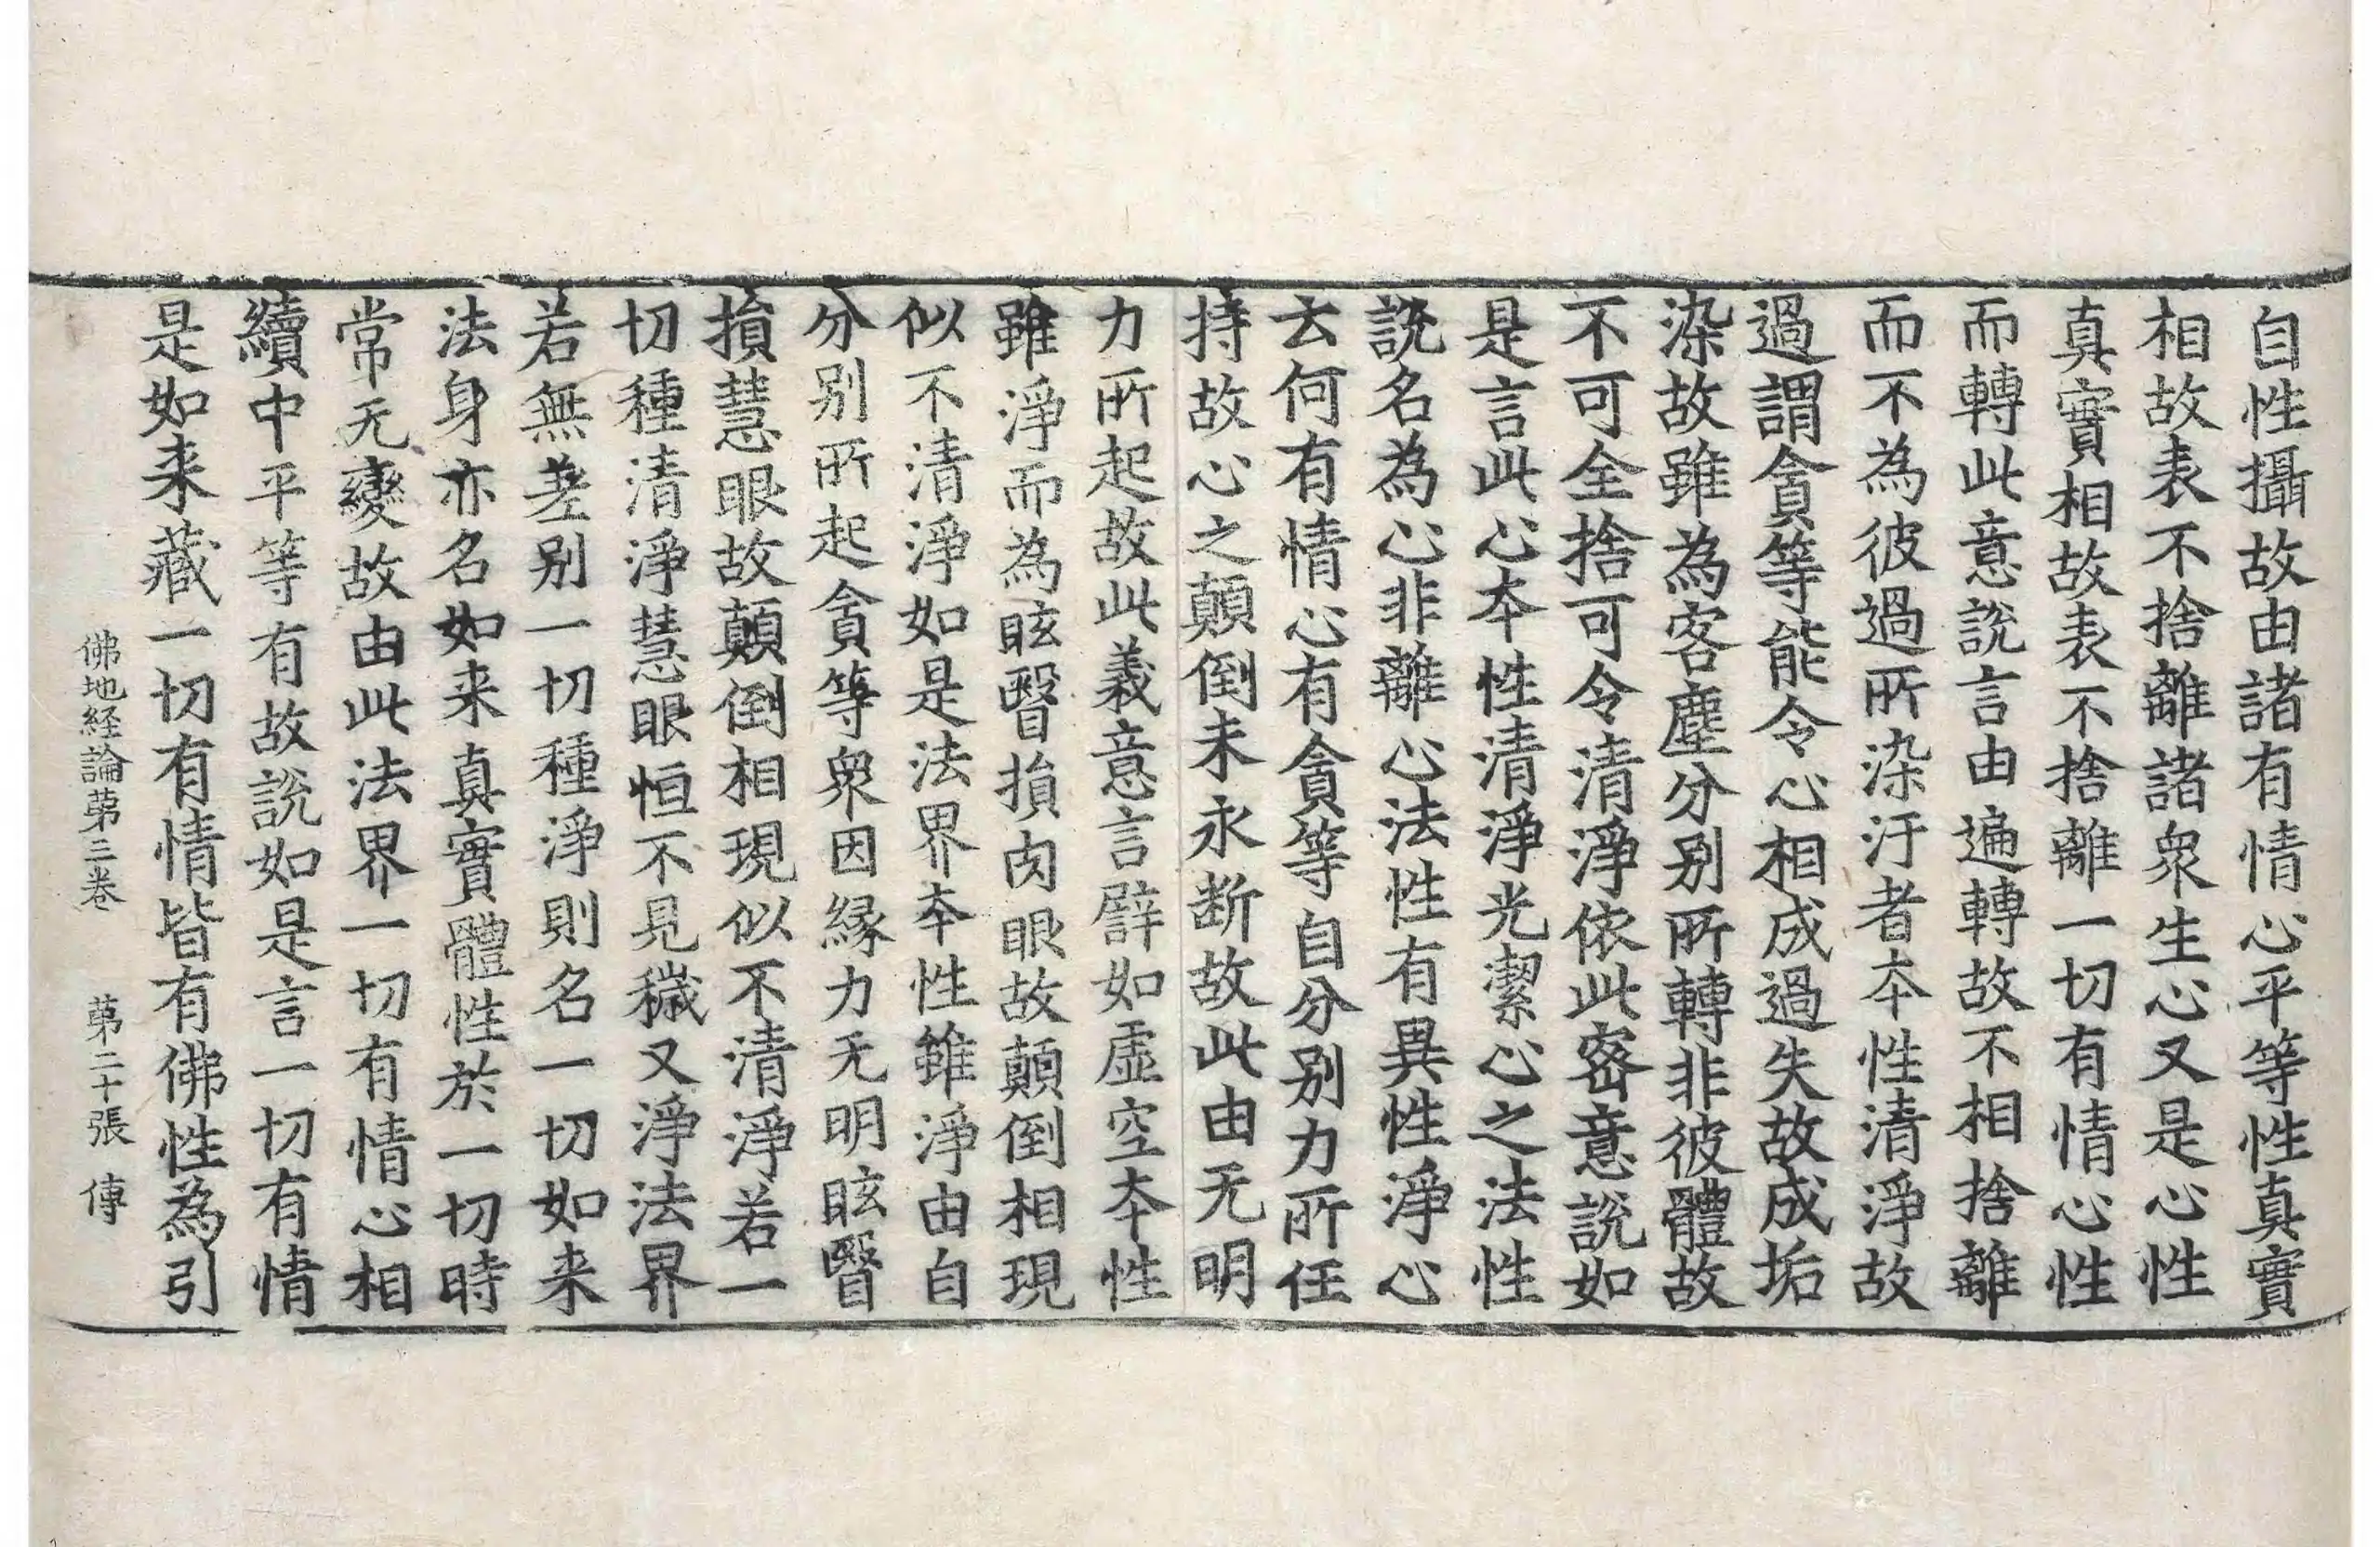 自性攝故由諸有情心平等性真實
相故表不捨離諸衆生心又是心性
真實相故表不捨離一切有情心性
而轉此意說言由遍轉故不相捨離
而不為彼過所染汙者夲性清淨故
過謂貪等能令心相成過失故成垢
染故雖為客塵分別所轉非彼體故
不可全捨可令清淨依此密意說如
是言此心夲性清淨光潔心之法性
說名為心非離心法性有異性淨心
云何有情心有貪等自分別力所任
持故心之顛倒未永断故此由无明
力所起故此義意言譬如虛空夲性
雖淨而為眩瞖損肉眼故顛倒相現
似不清淨如是法界夲性雖淨由自
分別所起貪等衆因緣力无明眩瞖
損慧眼故顛倒相現似不清淨若一
切種清淨慧眼恒不見穢又淨法界
若無差別一切種淨則名一切如来
法身亦名如来真實體性於一切時
常无變故由此法界一切有情心相
續中平等有故說如是言一切有情
是如来藏一切有情皆有佛性為引
佛地経論苐三卷 苐二十張 傳